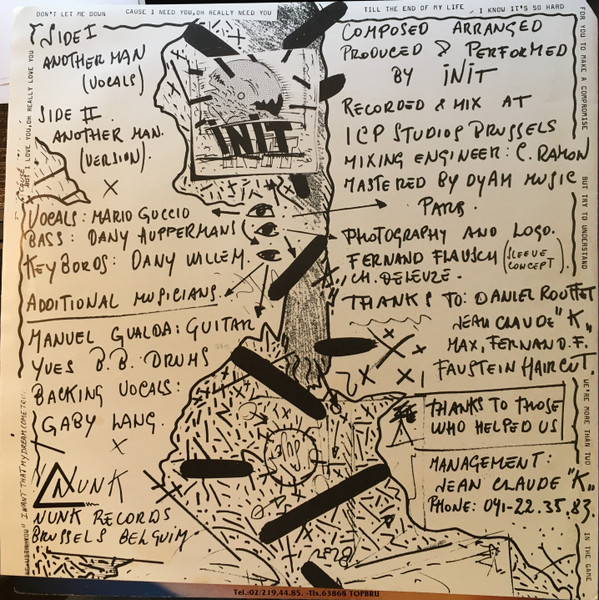 DON'T LET ME DOWN CAUSE I NEED YOU,OH REALLY NEED YOU
TILL THE END OF MY LIFE - I KNOW IT'S SO HARD
FOR YOU TO MAKE A COMPROMISE
BUT TRY TO UNDERSTAND
WE'RE MORE THAN TWO
IN THE GAME
I LOVE YOU,OH REALLY LOVE YOU
I WANT THAT MY DREAM COME TRUE
SIDE I
ANOTHER MAN
(VOCALS)
SIDE II
ANOTHER MAN.
(VERSION).
INIT
VOCALS: MARIO GUCCIO
BASS: DANY AUPPERMANS
KEYBORDS: DANY WILLEM.
ADDITIONAL MUSICIANS.
MANUEL GUALDA: GUITAR
YVES B.B. DRUMS
BACKING VOCALS:
GABY LANG.
NUNK
NUNK RECORDS
BRUSSELS BELGUIM
COMPOSED ARRANGED
PRODUCED & PERFORMED
BY INIT
RECORDED & MIX AT
ICP STUDIOS BRUSSELS
MIXING ENGINEER: C. RAMON
MASTERED BY DYAM MUSIC
PARIS.
PHOTOGRAPHY AND LOGO.
FERNAND FLAUSCH (SLEEVE CONCEPT).
CH. DELEUZE.
THANKS TO: DANIEL ROUFFET
JEAN CLAUDE "K",
MAX, FERNAND.F.
FAUSTEIN HAIRCUT.
THANKS TO THOSE
WHO HELPED US
MANAGEMENT:
JEAN CLAUDE "K"
PHONE: 041-22.35.83.
Tel.:02/219.44.85. -Tlx.63868 TOPBRU